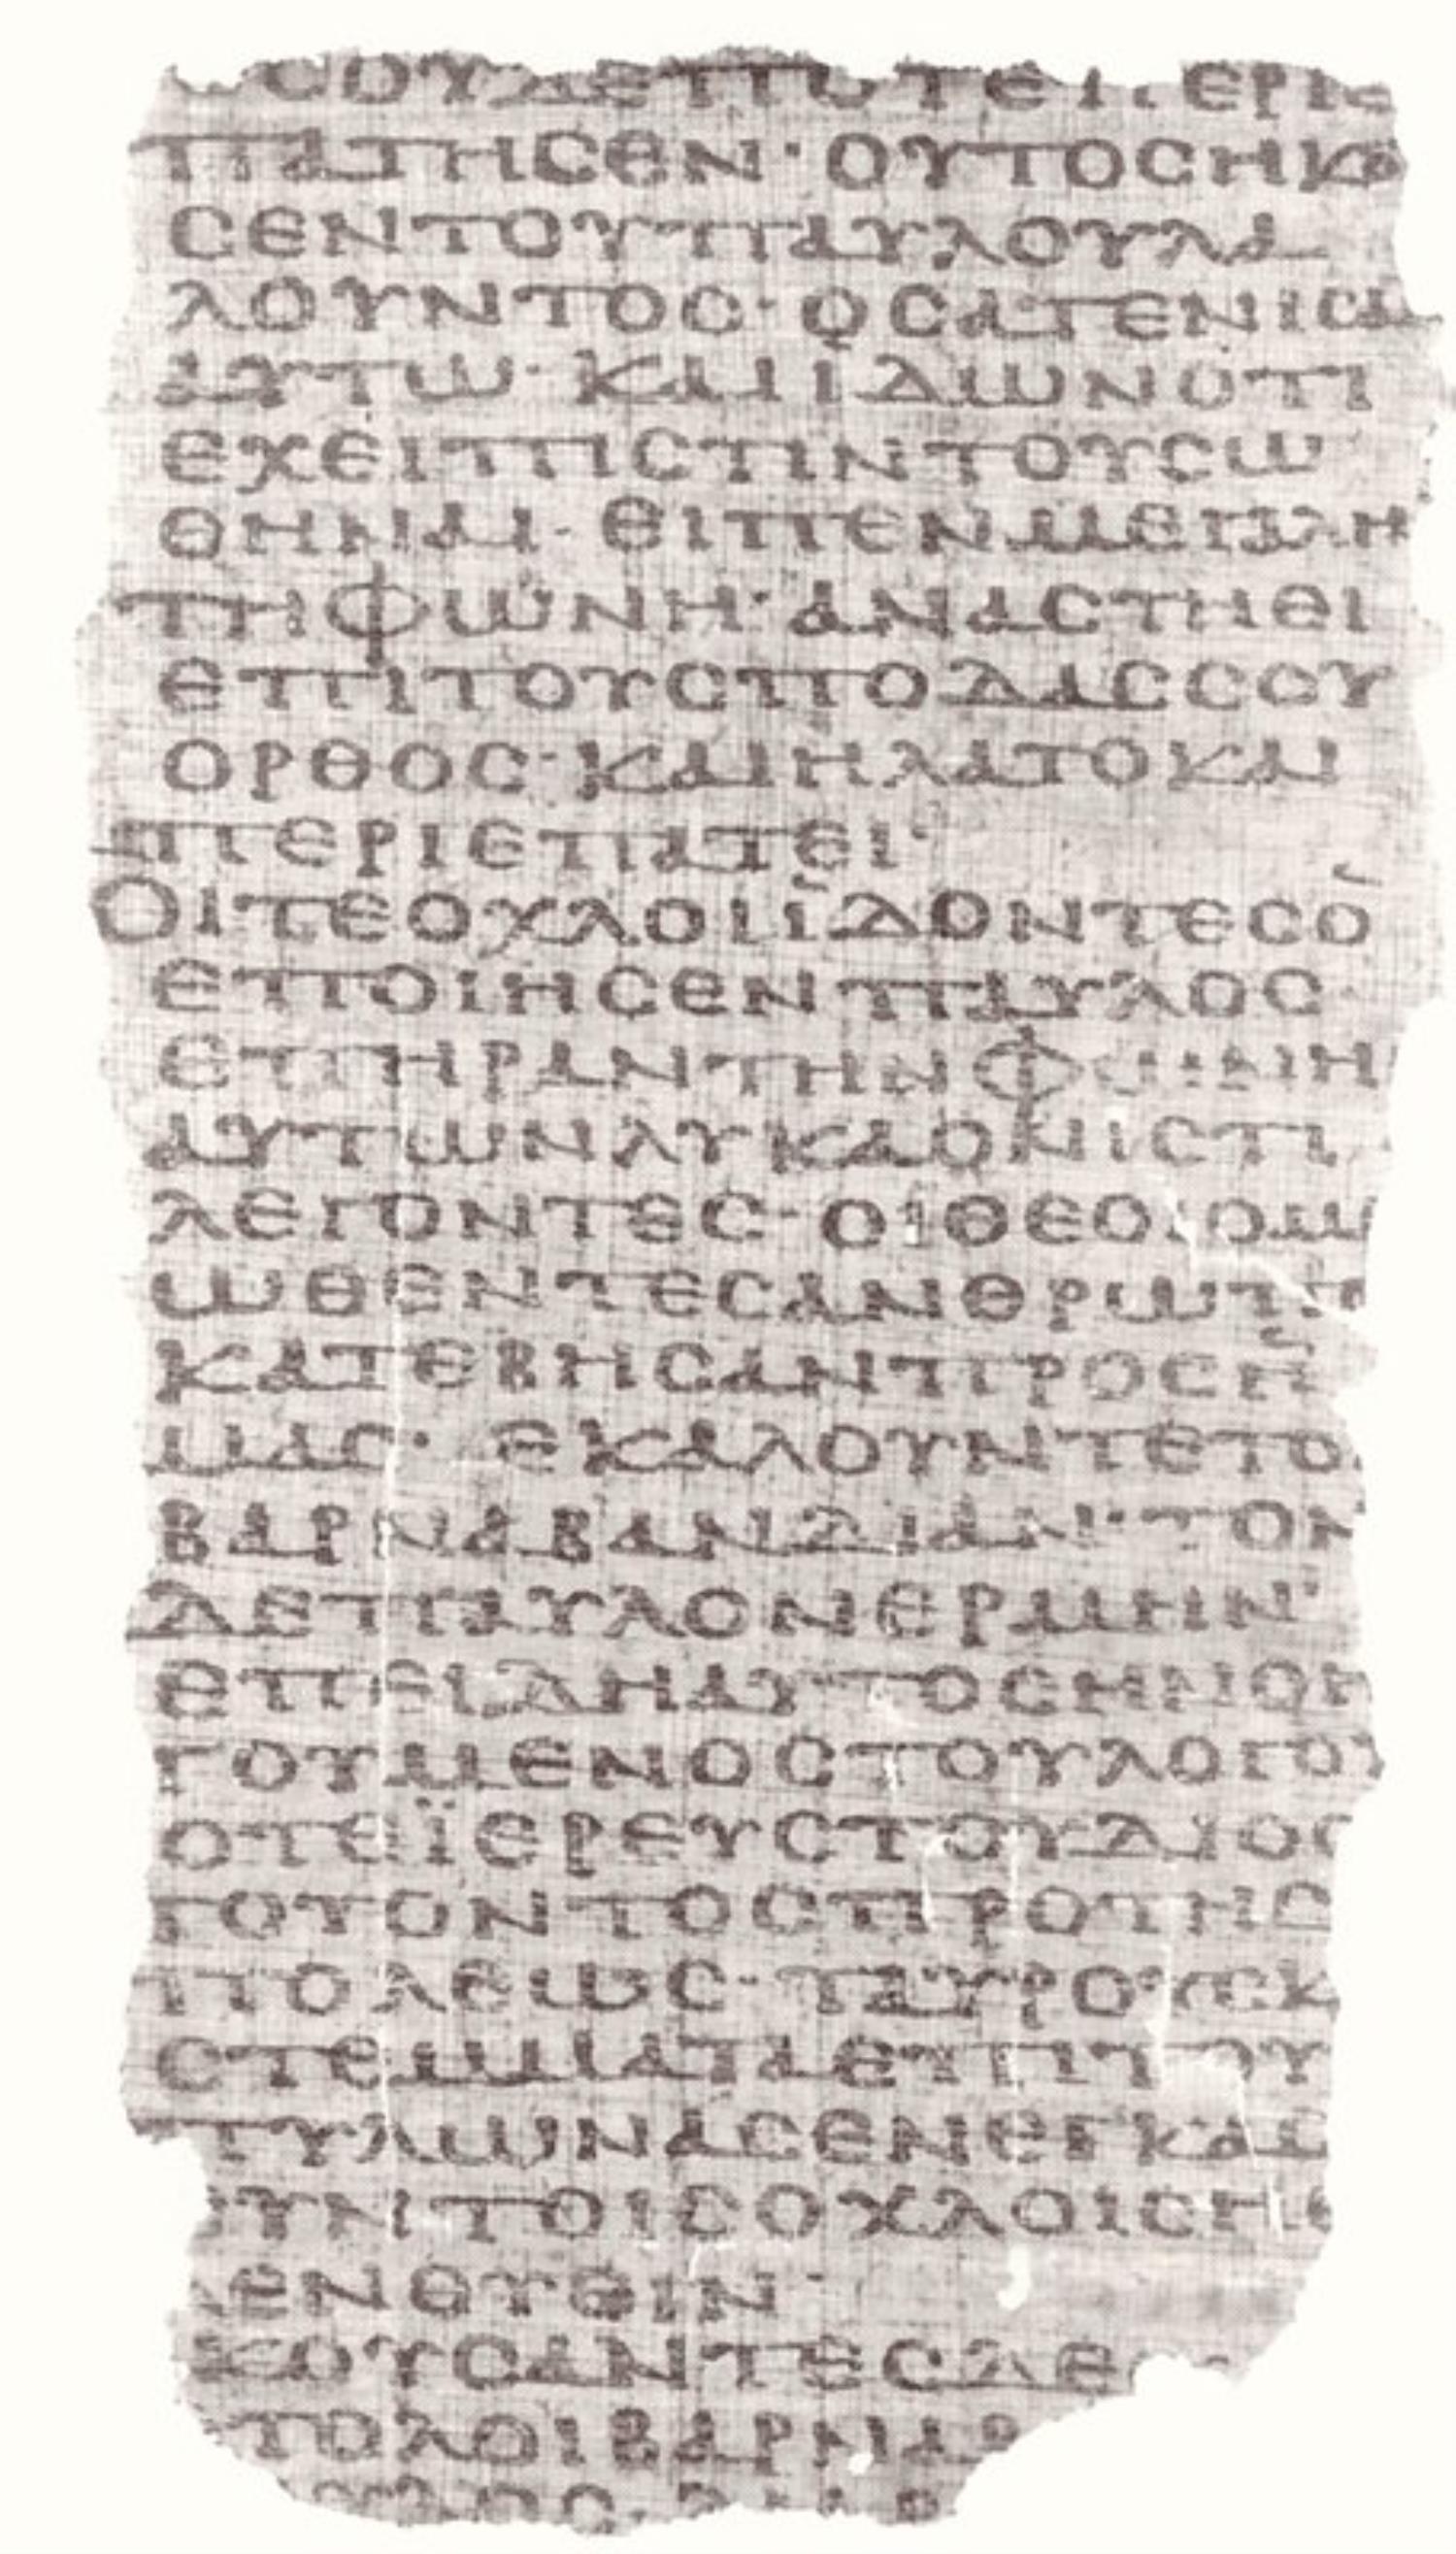 ΟΥΔΕΠΟΤΕΠΕΡΙΕ
ΠΑΤΗCΕΝ· ΟΥΤΟCΗΚΟ
CΕΝΤΟΥΠΑΥΛΟΥΛΑ
ΛΟΥΝΤΟC· ΟCΑΤΕΝΙCΑ
ΑΥΤΩ· ΚΑΙΙΔΩΝΟΤΙ
ΕΧΕΙΠΙCΤΙΝΤΟΥCΩ
ΘΗΝΑΙ· ΕΙΠΕΝΜΕΓΑΛΗ
ΤΗΦΩΝΗ· ΑΝΑCΤΗΘΙ
ΕΠΙΤΟΥCΠΟΔΑCCΟΥ
ΟΡΘΟC· ΚΑΙΗΛΑΤΟΚΑΙ
ΠΕΡΙΕΠΑΤΕΙ·
ΟΙΤΕΟΧΛΟΙΪΔΟΝΤΕCΟ
ΕΠΟΙΗCΕΝΠΑΥΛΟC
ΕΠΗΡΑΝΤΗΝΦΩΝΗ
ΑΥΤΩΝΛΥΚΑΟΝΙCΤΙ
ΛΕΓΟΝΤΕC· ΟΙΘΕΟΙΟΜΙ
ΩΘΕΝΤΕCΑΝΘΡΩΠ
ΚΑΤΕΒΗCΑΝΠΡΟCΗ
ΜΑC· ΕΚΑΛΟΥΝΤΕΤΟ
ΒΑΡΝΑΒΑΝΔΙΑΝ· ΤΟΝ
ΔΕΠΑΥΛΟΝΕΡΜΗΝ·
ΕΠΕΙΔΗΑΥΤΟCΗΝΟΗ
ΓΟΥΜΕΝΟCΤΟΥΛΟΓΟΥ
ΟΤΕΪΕΡΕΥCΤΟΥΔΙΟC
ΤΟΥΟΝΤΟCΠΡΟΤΗC
ΠΟΛΕΩC· ΤΑΥΡΟΥCΚ
CΤΕΜΜΑΤΑΕΠΙΤΟΥ
ΠΥΛΩΝΑCΕΝΕΓΚΑC
CΥΝΤΟΙCΟΧΛΟΙCΗΘ
ΛΕΝΘΥΕΙΝ·
ΚΟΥCΑΝΤΕCΔΕ
ΤΟΛΟΙΒΑΡΝΑΒ